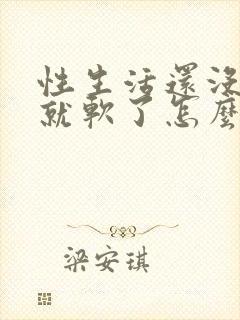 性生活還沒
就軟了怎麼
梁安琪